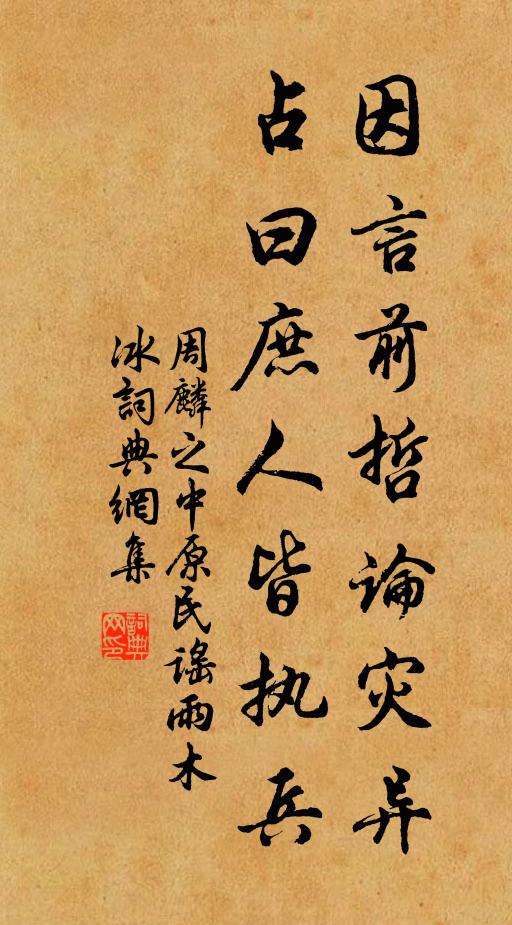 因言前哲论灾异
占曰庶人皆执兵
周麟之中原民谣雨木
冰词典网集
词典网印